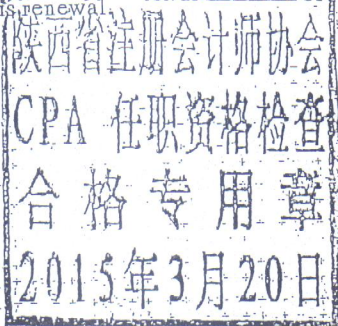 is renewal.
陕西省注册会计师协会
CPA 任职资格检查
合格专用章
2015年3月20日